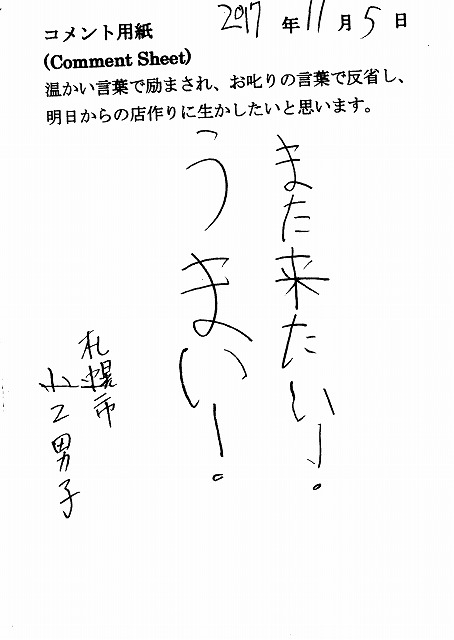 2017年11月5日
コメント用紙
(Comment Sheet)
温かい言葉で励まされ、お叱りの言葉で反省し、
明日からの店作りに生かしたいと思います。
また来たい！
うまい！
札幌市
小2男子